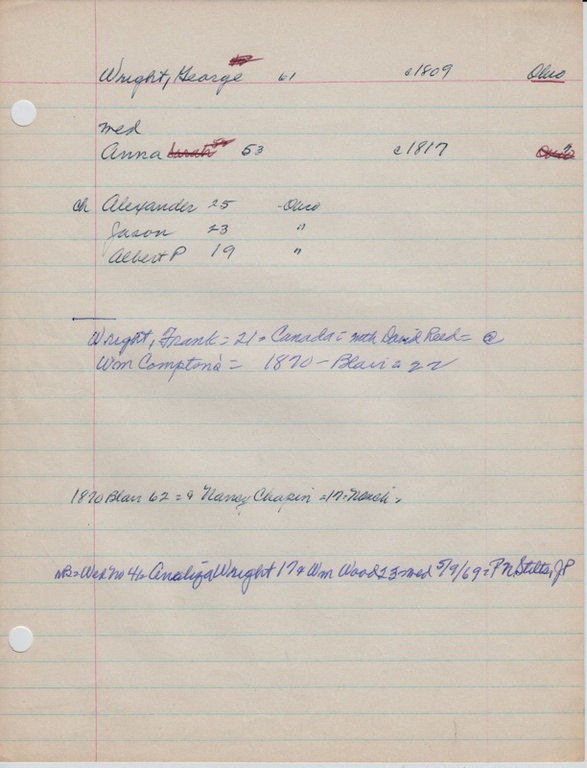 Wright, George 61 c1809 Ohio
med
Anna 53 c1817
ch Alexander 25 - Ohio
Jason 23 "
Albert P 19 "
Wright, Frank = 21 = Canada = with David Reed = @
Wm Compton's = 1870 - Blair = 22
1870 Blair 62 = & Nancy Chapin = 17 =
= Wed No 46 = Analiza Wright 17 & Wm Wood 23 = med 5/9/69 = P N Stilts, JP